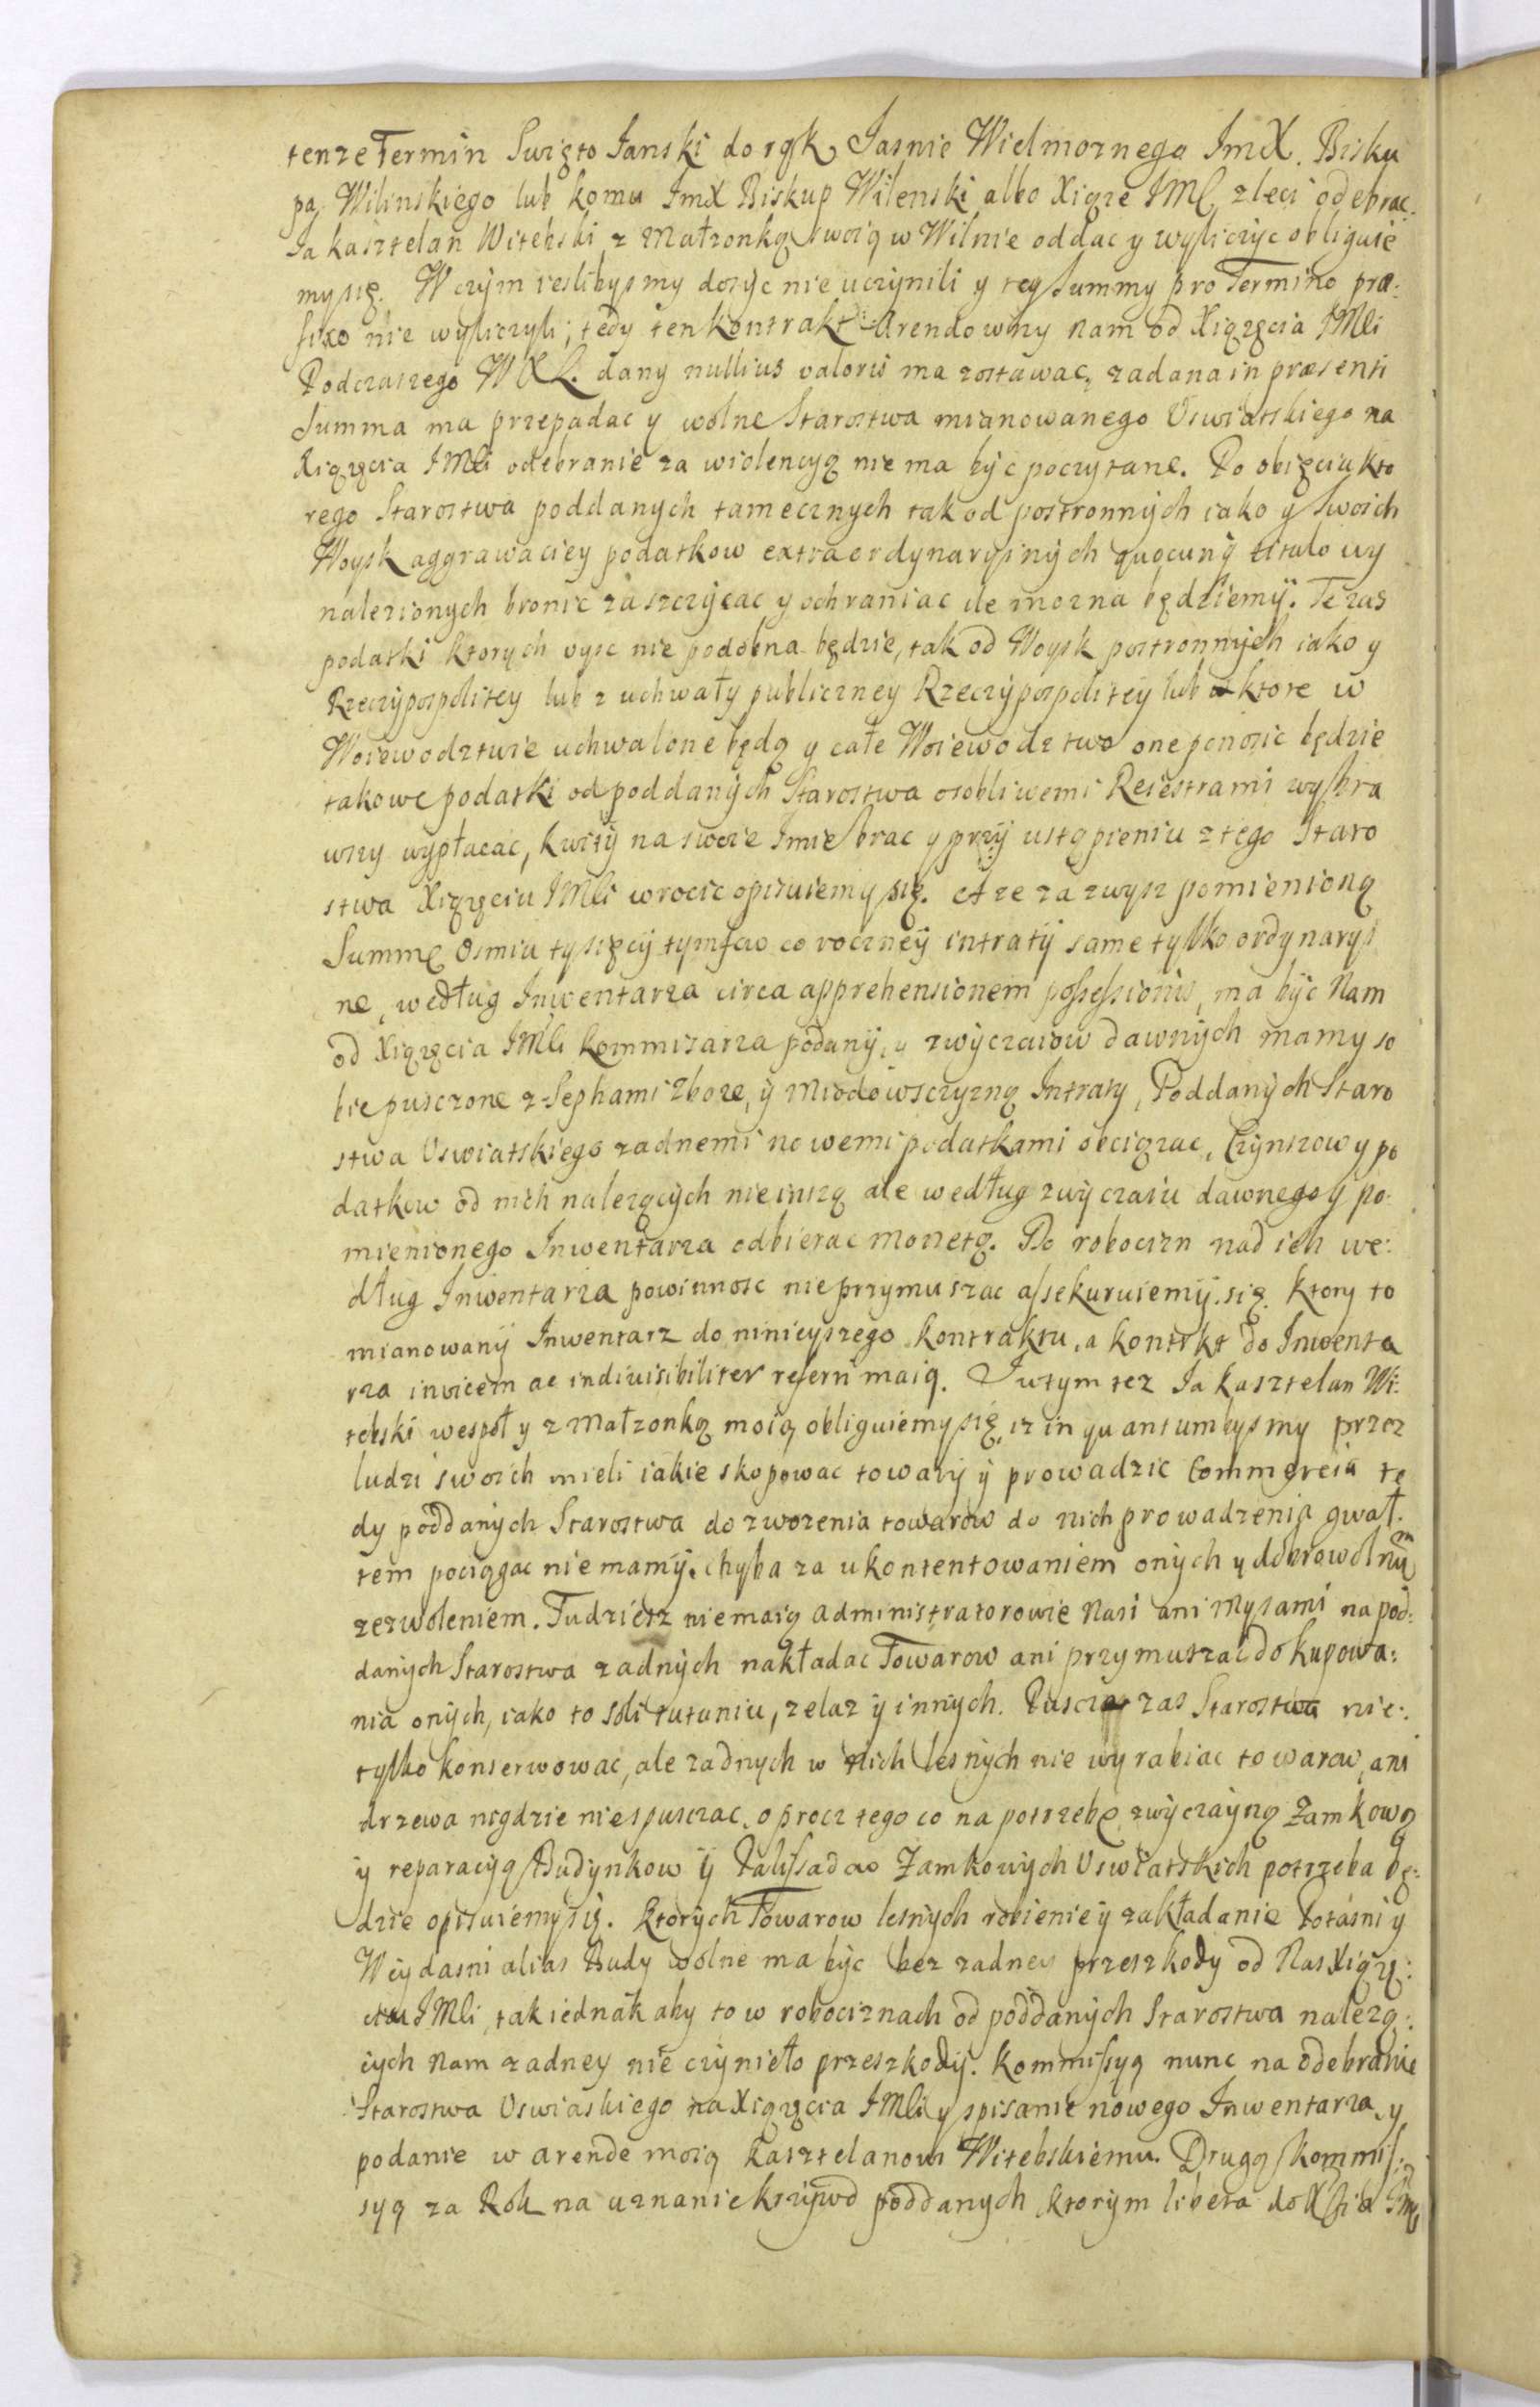 tenze Termin Swięto Janski do rąk Jasnie Wielmoznego JmX. Bisku
pa Wilinskiego lub komu JmX Biskup Wilenski albo Xiąze JMC zleci odebrac.
Ja kasztelan Witebski z Małzonką swoią w Wilnie oddac y wyliczyc obliguie
my się. W czym ieslibysmy dosyc nie uczynili y tey Summy pro Termino præ:
fixo nie wyliczyli; tedy ten kontrakt Arendowny nam od Xiązęcia JMCi
Podczaszego WXL. dany nullius valoris ma zostawac, zadana in præsenti
Summa ma przepadac y wolne Starostwa mianowanego Uswiatskiego na
Xiązęcia JMCi odebranie za wiolencyą nie ma byc poczytane. Po obięciu kto
rego Starostwa poddanych tamecznych tak od postronnych iako y swoich
Woysk aggrawaciey podatkow extraordynaryinych quocunq titulo wy
nalezionych bronic zaszczycac y ochraniac ile mozna będziemy. Te zas
podatki ktorych uysc nie podobna będzie, tak od Woysk postronnych iako y
Rzeczypospolitey lub z uchwały publiczney Rzeczypospolitey lub ktore w
Woiewodztwie uchwalone będą y całe Woiewodztwo one ponosic będzie
takowe podatki od poddanych Starostwa osobliwemi Reiestrami wybra
wszy wypłacac, kwity na swoie Imie brac y przy ustąpieniu z tego Staro
stwa Xiązęciu JMCi wrocic opisuiemy się. A ze za zwysz pomienioną
Summę osmiu tysięcy tymfow co roczney intraty same tylko ordynaryi
ne, według Inwentarza circa apprehensionem possessionis, ma byc Nam
od Xiązęcia JMCi kommisarza podany, y zwyczaiow dawnych mamy so
bie pusczone z Sephami Zboze, y Miodowsczyzną Intraty, Poddanych Staro
stwa Uswiatskiego zadnemi nowemi podatkami obciązac, Czynszow y po
datkow od nich nalezących nie inszą ale według zwyczaiu dawnego y po
mienionego Inwentarza odbierac monetą. Do robocizn nad ich we:
dług Inwentarza powinnosc nie przymuszac assekuruiemy się. Ktory to
mianowany Inwentarz do ninieyszego kontraktu, a kontrkt do Inwenta
rza invicem ac indivisibiliter referri maią. Jutym tez Ja kasztelan Wi:
tebski wespoł y z Małzonką moią obliguiemy się, iz in quantum bysmy przez
ludzi swoich mieli iakie skopowac towary y prowadzic Commercia te
dy poddanych Starostwa do zwozenia towarow do nich prowadzenia gwał:
tem pociągac nie mamy, chyba za ukontentowaniem onych y dobrowolnym
zezwoleniem. Tudziesz nie maią Administratorowie Nasi ani My sami na pod:
danych Starostwa zadnych nakładac Towarow ani przymuszac do kupowa:
nia onych, iako to soli tutuniu, zelaz y innych. Puscz zas Starostwa nie:
tylko konserwowac, ale zadnych w nich lesnych nie wyrabiac towarow, ani
drzewa nigdzie nie spusczac, oprocz tego co na potrzebę zwyczayną Zamkową
y reparacyą Budynkow y Palissadow Zamkowych Uswiatskich potrzeba bę:
dzie opisuiemy się. Ktorych Towarow lesnych robienie y zakładanie Potasni y
Weydasni alias Budy wolne ma byc bez zadney przeszkody od Nas Xiązę:
ciu JMCi, tak iednak aby to w robociznach od poddanych Starostwa nalezą:
cych Nam zadney nie czynieło przeszkody. Kommissyą nunc na odebranie
Starostwa Uswiaskiego na Xiązęcia JMCi y spisanie nowego Inwentarza, y
podanie w arende moią Kasztelanowi Witebskiemu. Drugą Kommis:
syą za Rok na uznanie krzywd poddanych ktorym libera do